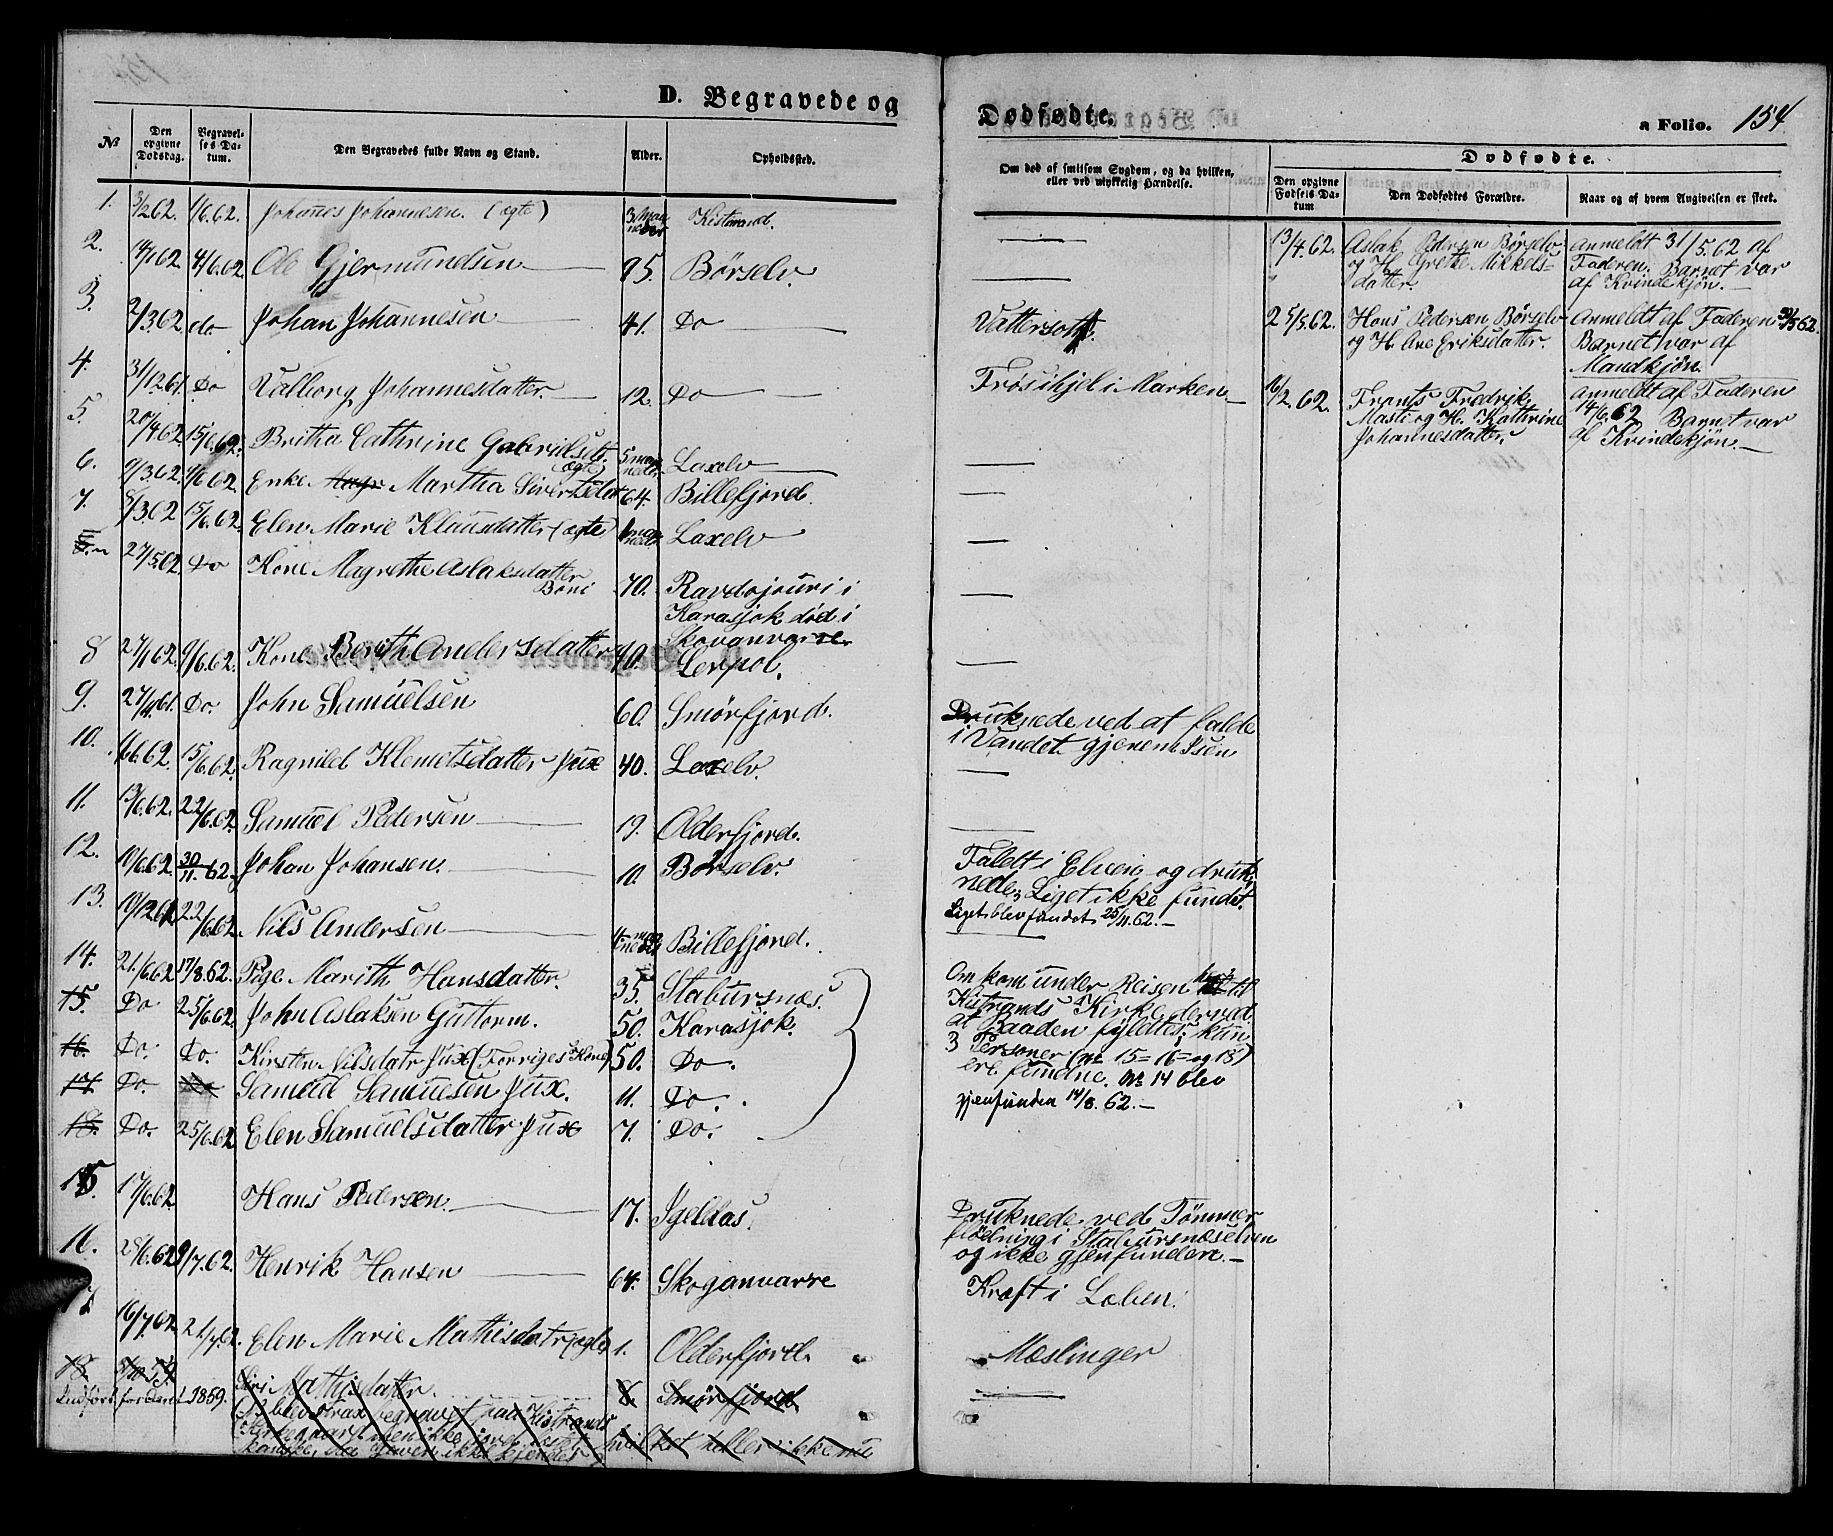 D. Begravede og Dødfødte. a Folio. 154
№ Den opgivne Dødsdag. Begravelses Datum. Den Begravedes fulde Navn og Stand. Alder. Opholdssted.
Om død af smitsom Sygdom, og da hvilken, eller ved ulykkelig Hændelse.
Dødfødte.
Den opgivne Fødsels Datum Den Dødfødtes Forældre. Naar og af hvem Angivelsen er skeet.
1. 3/2 62. 1/6. 62. Johannes Johannesen. (ægte) 3 Maaneder Kistrand.
2. 4/6 62 Ole Gjermundsen 95. Børselv.
3. 2/3 62 do Johan Johannesen 41. Do Vattersott.
4. 31/12 61. Do Valborg Johannesdatter 12. Do Frøs ihjel i Marken
5. 20/4 62 15/6. 62. Britha Cathrine Gabrielsdt. (ægte) 5 maaneder Laxelv
6. 9/3. 62. 4/6 62. Enke Martha Siversdat 64. Billefjord.
7. 8/3 62 15/6. 62. Elen Marie Klausdatter (ægte) maaneder Laxelv
27/5 62. Do Kone Magrethe Aslaksdatter 70. Ravdojouri i
Karasjok død i
Skovanvarre
8 27/1 62. 9/6. 62. Kone Berith Andersdatter Lerpol.
9. 27/4 61. Do. John Samuelsen 60. Smørfjord. Druknede ved at falde
i Vandet gjenem Isen
10. 6/6. 62. 15/6. 62. Ragnild Klemetsdatter Jux 40. Laxelv.
11. 13/6. 62. 22/6. 62. Samuel Pedersen 19. Olderfjord.
12. 10/6. 62 30/11. 62. Johan Johansen. 10. Børselv. Faldt i Elven og druk-
nede; Liget ikke fundet.
Liget blev fundet 25/11. 62.
13. 22/6. 62. Nils Andersen Billefjord.
14. 21/6. 62 17/8. 62. Pige Marith Hansdatter. 35. Stabursnæs. Omkom under Reisen til
15. Do 25/6. 62 John Aslaksen Guttorm. 50. Karasjok. Kistrands Kirke derved
at Baaden fyldtes; kun
16. Do. Do. Kirsten Nilsdatr Jux (Forriges Kone) 50. Do. 3 Personer (№ 15 = 16 = og 18)
17. Do. Samuel Samuelsen Jux. 11. Do. ere fundne. № 14 blev
18. Do. 25/6. 62 Elen Samuelsdatter Jux 7. Do. gjenfunden 14/8. 62.
15. 17/6. 62 Hans Pedersen 17. Igeldas. Druknede ved Tømmer
flødning i Stabursnæselven
og ikke gjenfunden.
16. 28/6. 62 9/7. 62 Henrik Hansen 64. Skoganvarre Kræft i Læben.
17 16/7. 62 21/7. 62. Elen Marie Mathisdatr (ægte) 1. Olderfjord. Mæslinger
18. Siri Mathisdatter. 8. Smørfjord.
Indført for Aaret 1859. blev strax begravet paa Kistrands
Kirkegaard men ikke
hvilket heller ikke nu
13/4. 62. Aslak Pedersen Børselv Anmeldt 31/5. 62 af
og H. Grethe Mikkels- Faderen. Barnet var
datter. af Kvindekjøn.
25/5. 62. Hans Pedersen Børselv Anmeldt af Faderen 31/5 62.
og H. Ane Eriksdatter. Barnet var af
Mandkjøn.
16/2. 62. Frants Fredrik Anmeldt af Faderen
Maste og H. Kathrine 14/6. 62 Barnet var
Johannesdatter. af Kvindekjøn.